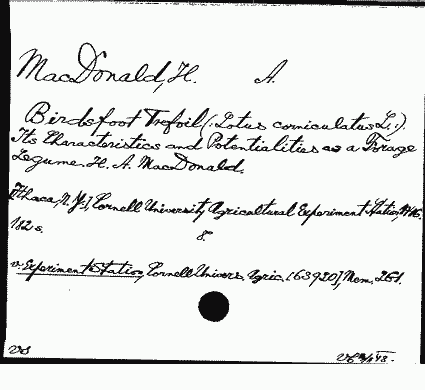 MacDonald, H. A.
Birdsfoot Trefoil (: Lotus corniculatus L. :).
Its Characteristics and Potentialities as a Forage
Legume. H. A. MacDonald.
[Ithaca, N. Y.,] Cornell University Agricultural Experiment Station, 1946.
182 s. 8.
v. Experiment Station, Cornell Univers. Agric. [63920], Mem. 261.
VS